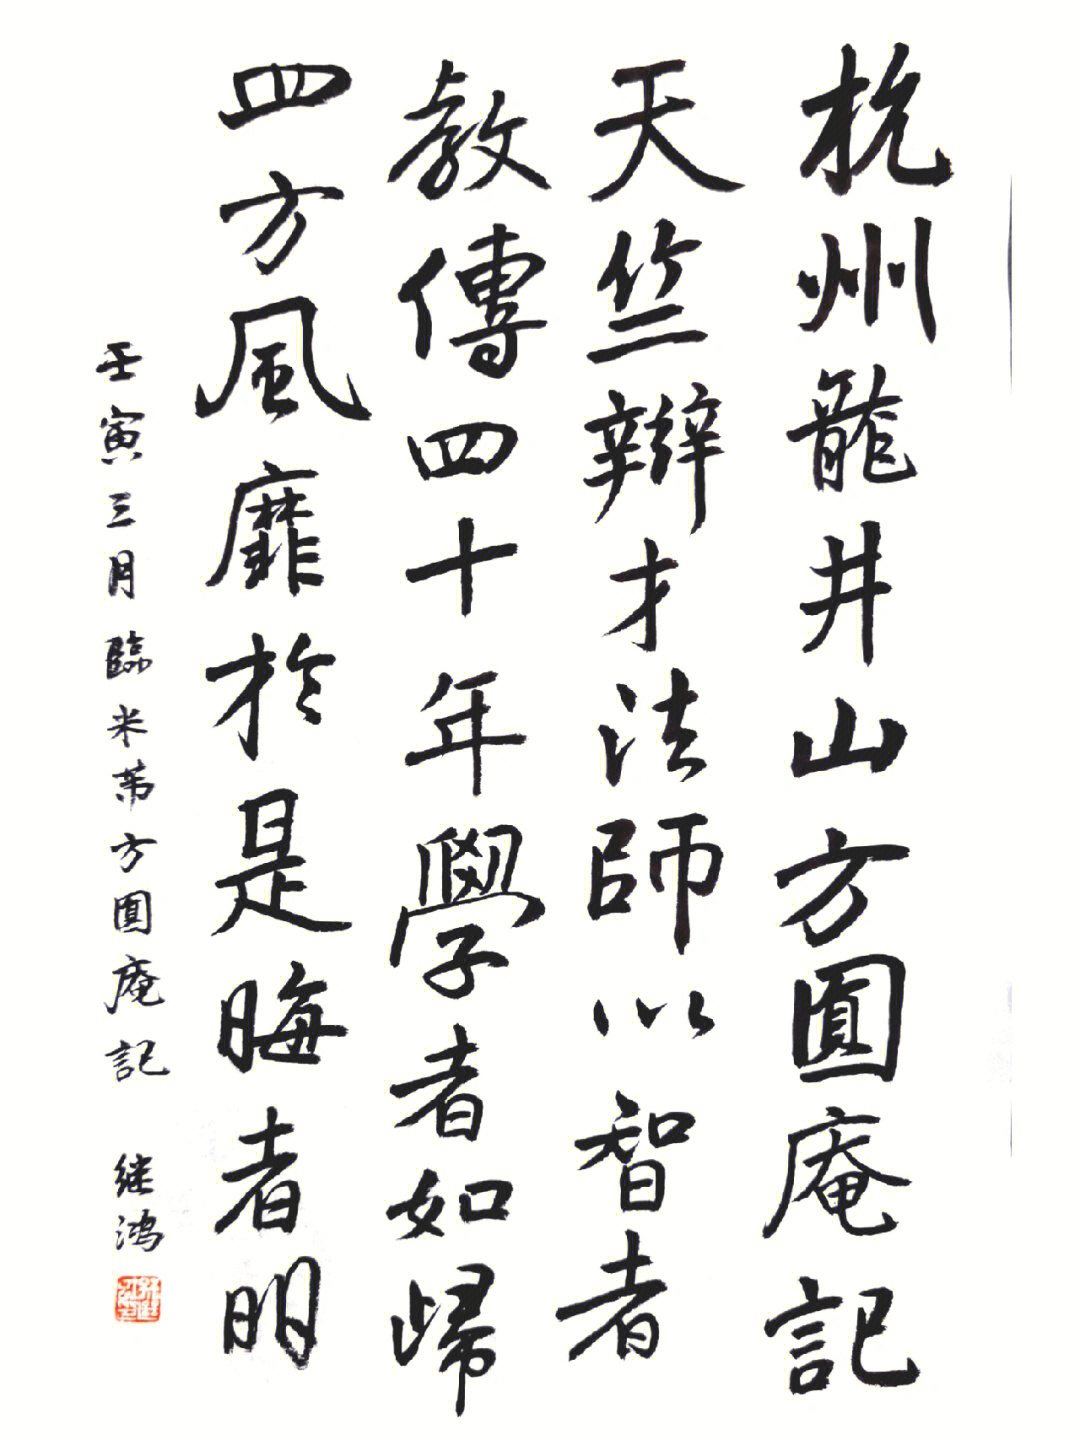 杭州龍井山方圓庵記
天竺辯才法師以智者
教傳四十年學者如歸
四方風靡於是晦者明
壬寅三月臨米芾方圓庵記 继鴻